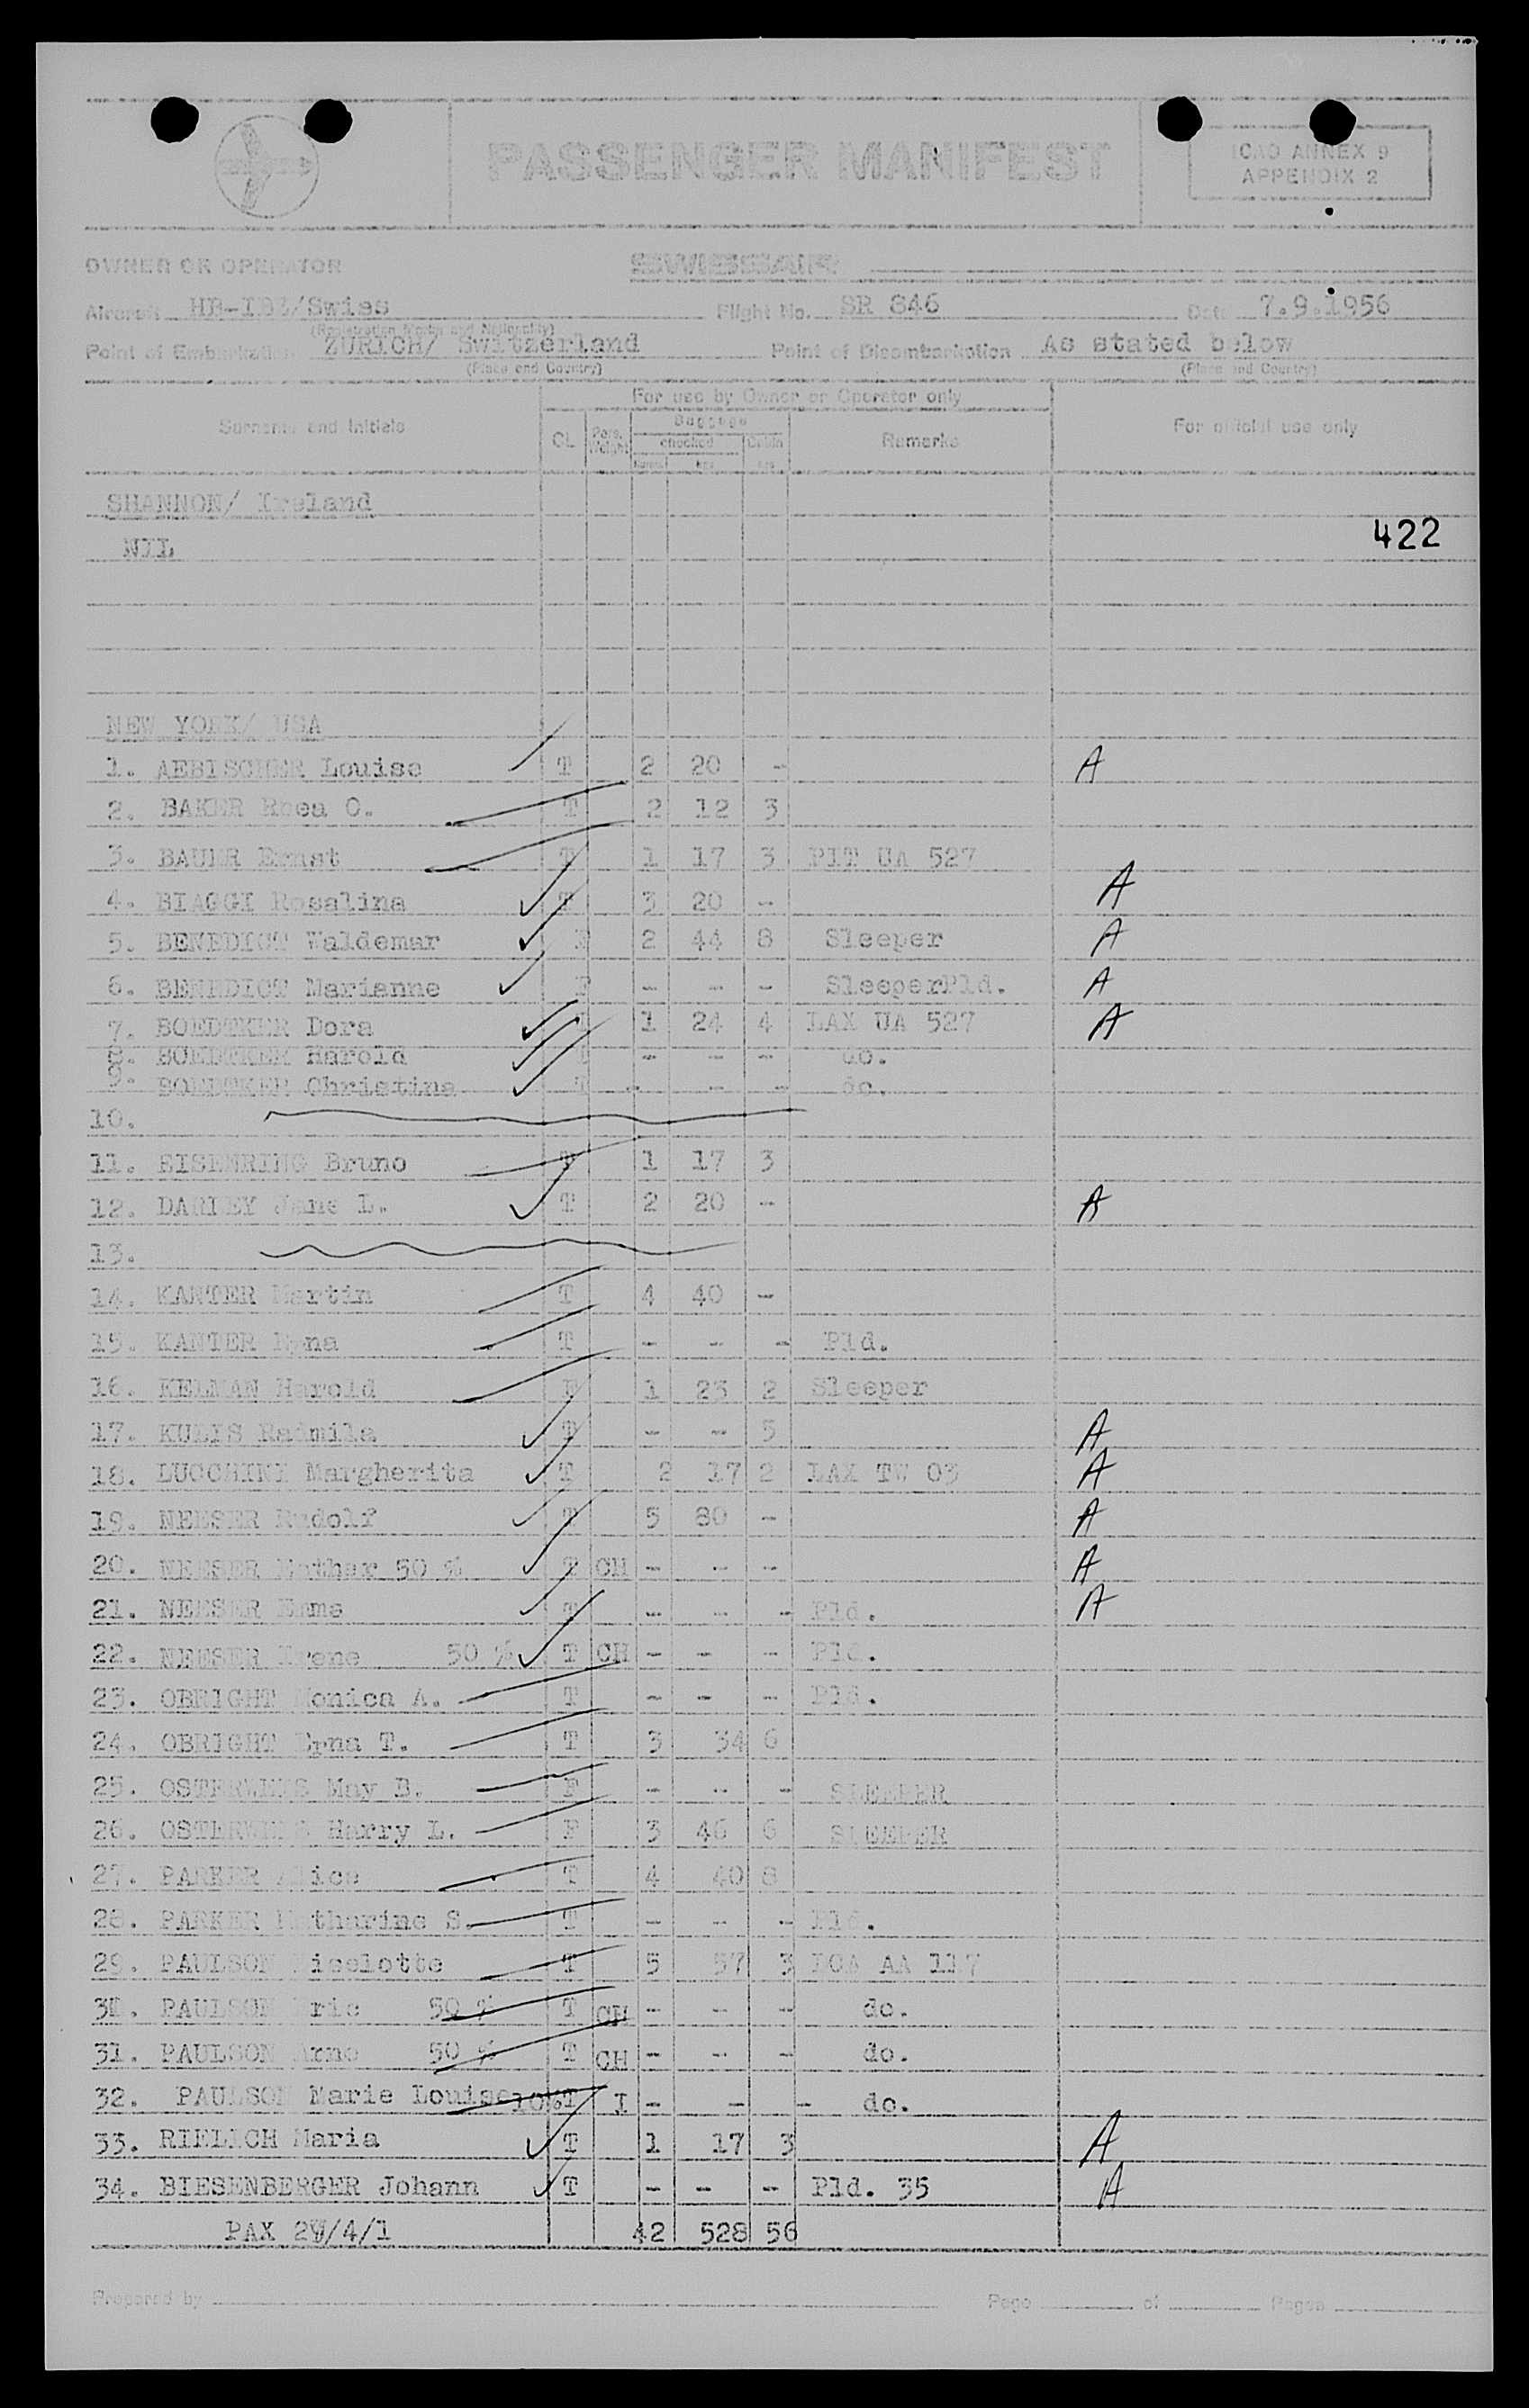 PASSENGER MANIFEST
ICAO ANNEX 9
APPENDIX 2
OWNER OR OPERATOR SWISSAIR
Aircraft /Swiss Flight No. SR 846 Date 7.9.1956
(Registration Marks and Nationality)
Point of Embarkation ZURICH/ Switzerland Point of Disembarkation As stated below
(Place and Country) (Place and Country)
For use by Owner or Operator only
Surname and Initials CL Pers. Weight Baggage checked Cabin kgs Remarks For official use only
SHANNON/ Ireland
422
NIL
NEW YORK/ USA
1. AEBISCHER Louise T 2 20 - A
2. BAKER Rhea O. T 2 12 3
3. BAUER Ernst T 1 17 3 PIT UA 527
4. BIAGGI Rosalina T 3 20 - A
5. BENEDICT Waldemar F 2 44 8 Sleeper A
6. BENEDICT Marianne F - - - SleeperPld. A
7. BOEDTKER Dora 1 24 4 LAX UA 527 A
8. BOEDTKER Harold - - - do.
9. BOEDTKER Christine T - - - do.
10.
11. EISENRING Bruno T 1 17 3
12. DARLEY Jane L. T 2 20 - A
13.
14. KANTER Martin T 4 40 -
15. KANTER T - - - Pld.
16. KELMAN Harold F 1 23 2 Sleeper
17. KULIS Radmila T - - 5 A
18. LUCCHINI Margherita T 2 17 2 LAX TW 03 A
19. NEESER Rudolf T 5 80 - A
20. NEESER 50 % T CH - - - A
21. NEESER T - - - Pld. A
22. NEESER Irene 50 % T CH - - - Pld.
23. OBRIGHT Monica A. T - - - Pld.
24. OBRIGHT Erna T. T 3 34 6
25. May B. F - - - SLEEPER
26. Harry L. F 3 46 6 SLEEPER
27. PARKER Alice T 4 40 8
28. PARKER Katharine S. T - - - Pld.
29. PAULSON Liselotte T 5 57 3 AA 117
30. PAULSON Eric 50 % T CH - - - do.
31. PAULSON Arno 50 % T CH - - - do.
32. PAULSON Marie Louise 10% T I - - - do.
33. Maria T 1 17 3 A
34. BIESENBERGER Johann T - - - Pld. 35 A
PAX 29/4/1 42 528 56
Prepared by Page of Pages